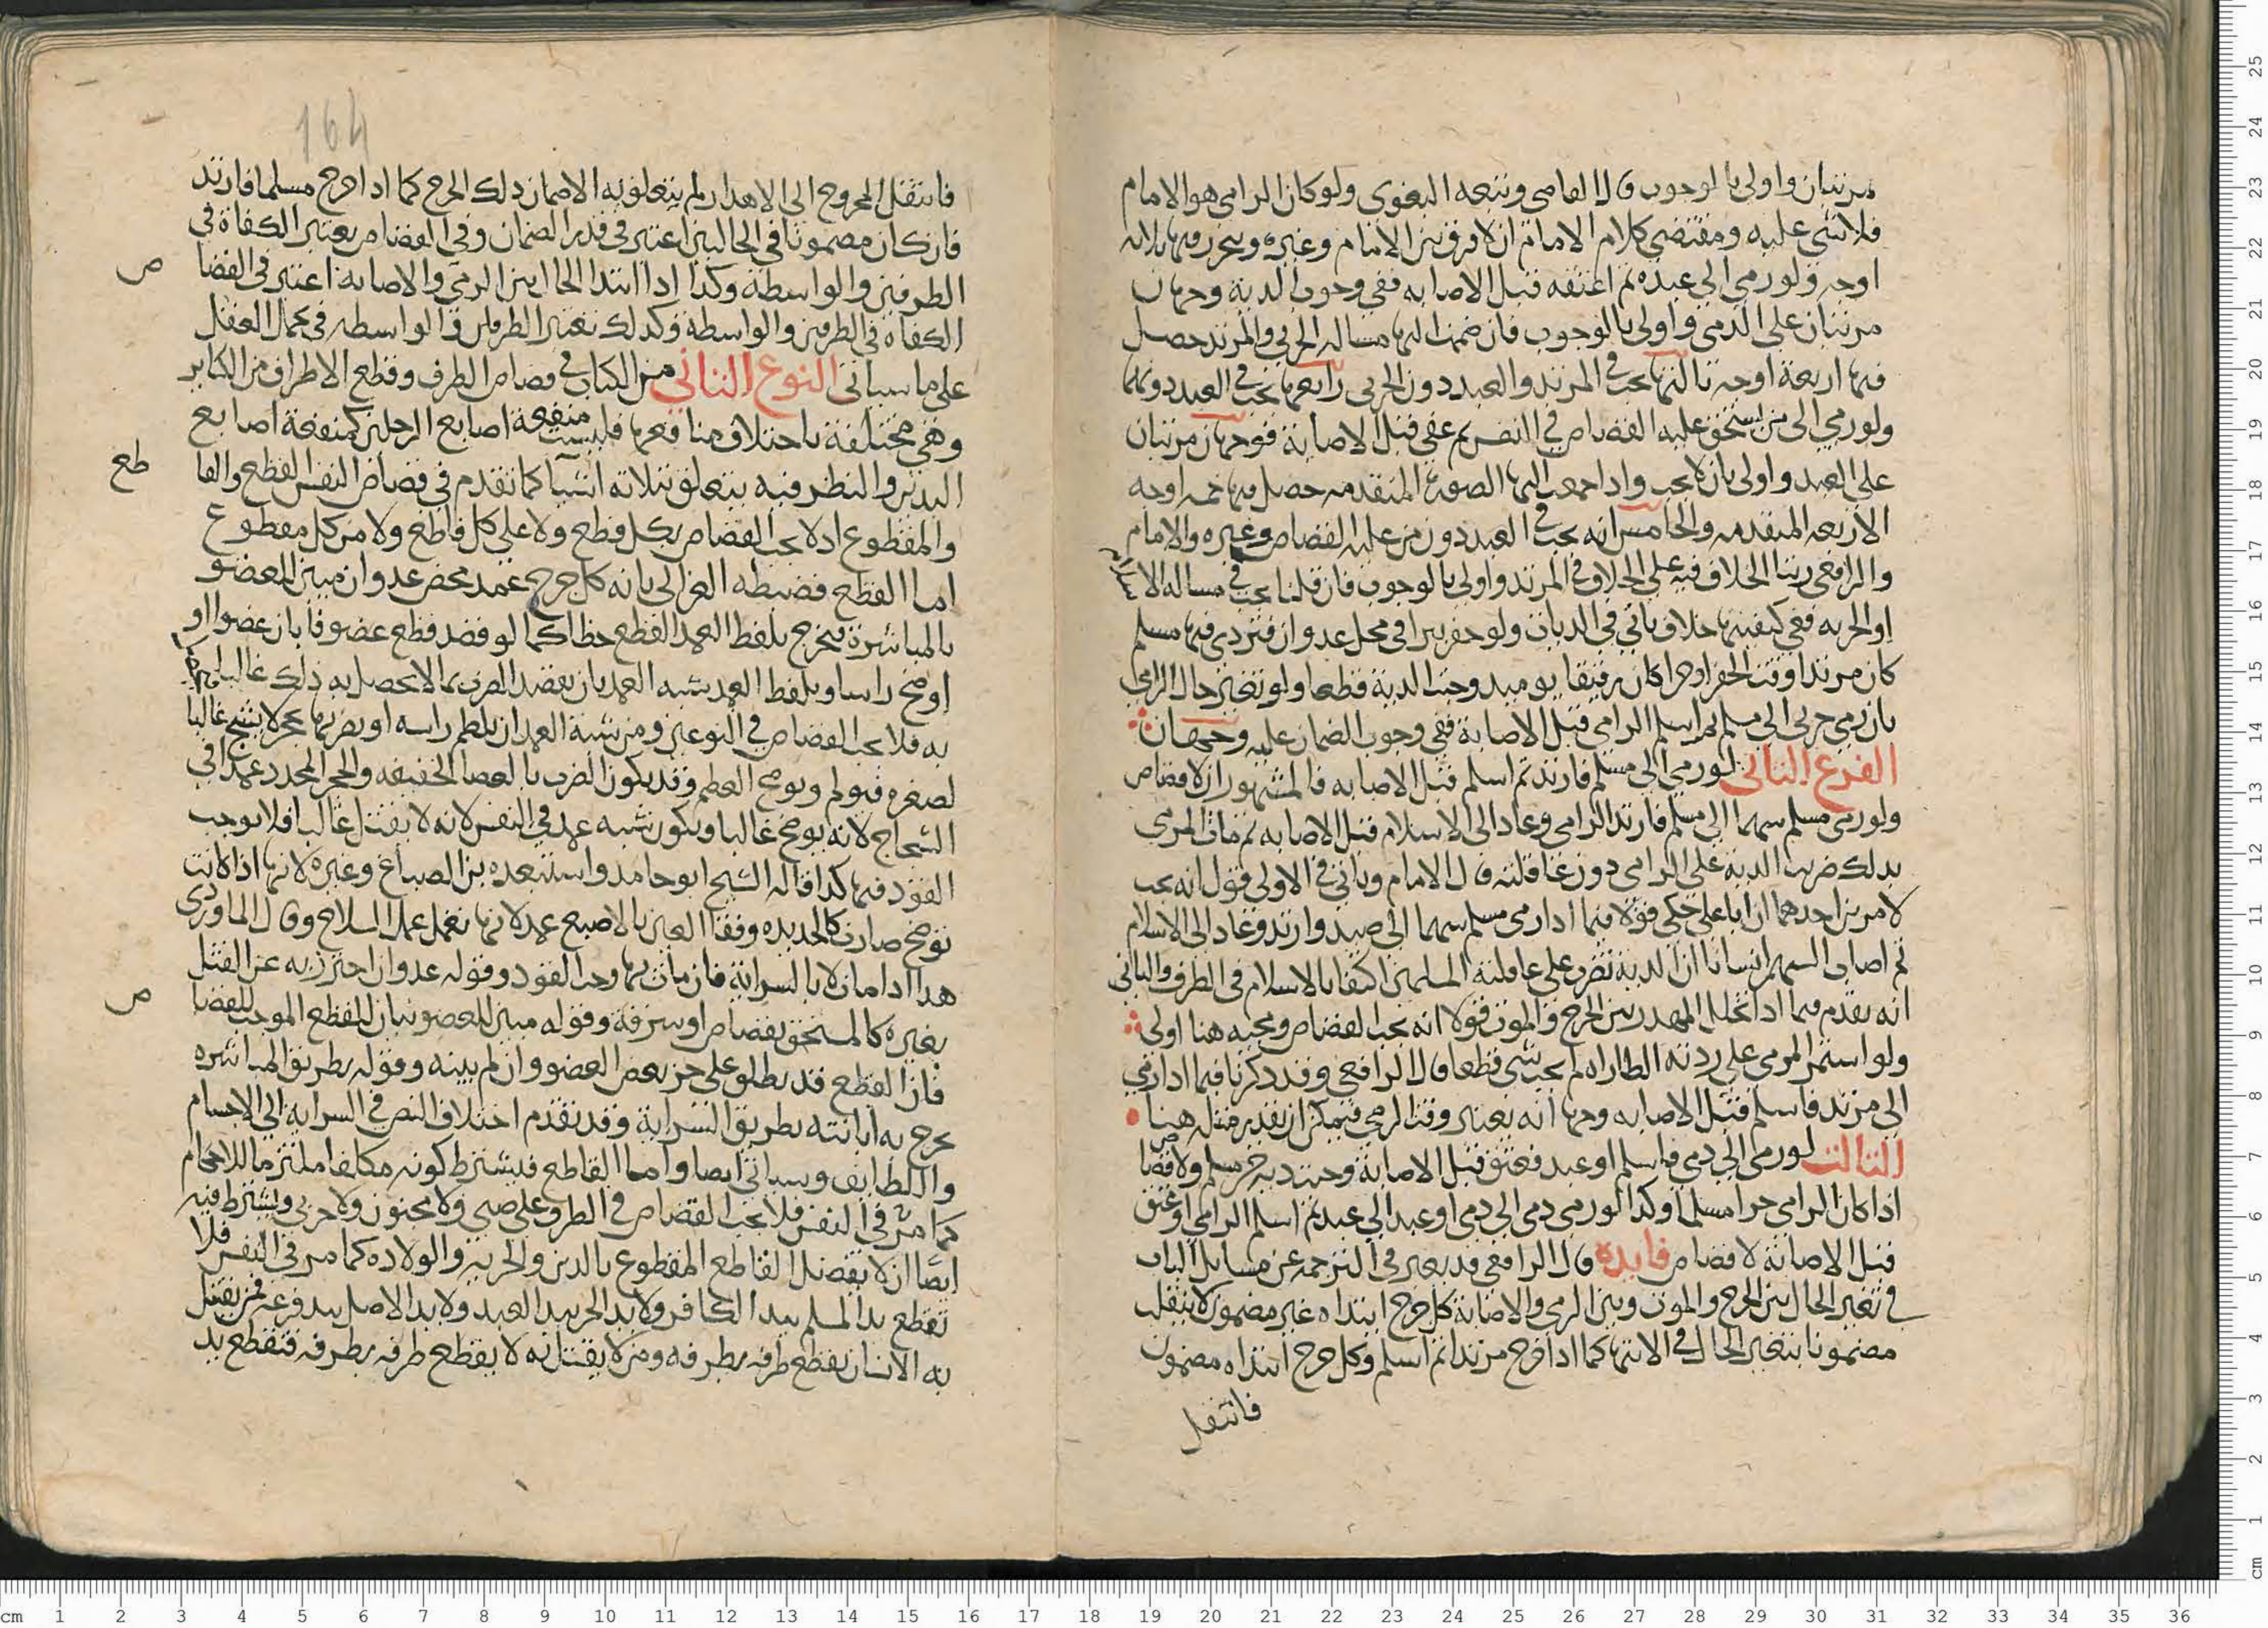 مرتبان واولى بالوجوب قال القاضي وتبعه البغوى ولو كان الرامى هو الامام
فلا شى عليه ومقتضى كلام الامام ان لا فرق بين الامام وغيره ويخرج فيها ثلاثه
اوجه ولو رمى الى عبده ثم اعتقه قبل الاصابه ففى وجوب الدية وجهان
مرتبان على الذمى واولى بالوجوب فان ضمت اليها مساله الحربي والمرتد حصل
فيها اربعة اوجه ثالثها يجب في المرتد والعبد دون الحربى رابعها يجب في العبد دونهما
ولو رمي الى من يستحق عليه القصاص في النفس ثم عفى قبل الاصابة فوجهان مرتبان
على العبد واولى بان لا يجب واذا جمعت اليها الصورة المتقدمه حصل فيها خمسه اوجه
الاربعه المتقدمه والخامس انه يجب في العبد دون من عليه القصاص وغيره والامام
والرافعى رتبا الخلاف فيه على الخلاف في المرتد واولى بالوجوب فان قلنا يجب في مساله
او الحربه ففي كيفيتها خلاف ياتي في الديات ولو حفر بيرا في محل عدوان فتردى فيها مسلم
كان مرتدا وقت الحفر او حرا كان رقيقا يوميد وجبت الدية قطعا ولو تغير حال الرامي
بان رمى حربى الى مسلم ثم اسلم الرامى قبل الاصابة ففي وجوب الضمان عليه وجهان
الفرع الثاني لو رمى الى مسلم فارتد ثم اسلم قبل الاصابه فالمشهور ان لا قصاص
ولو رمى مسلم سهما الى مسلم فارتد الرامى وعاد الى الاسلام قبل الاصابه ثم مات المرمى
بذلك ضربت الدية على الرامى دون عاقلته قال الامام وياتي في الاولى قول انه يجب
لامرين احدهما ان ابا على حكى قولا فيما اذا رمى مسلم سهما الى صيد وارتد وعاد الى الاسلام
ثم اصاب السهم انسانا ان الدية تضرب على عاقلته المسلمين اكتفا بالاسلام في الطرف والثاني
انه تقدم فيما اذا تخلل المهدر بين الجرح والموت قولا انه يجب القصاص ومجيه هنا اولى
ولو استمر المرمى على ردته الطاراه لم يجب شى قطعا قال الرافعي وقد ذكرنا فيما اذا رمي
الى مرتد فاسلم قبل الاصابه وجها انه يعتبر وقت الرمي فيمكن ان يقدر مثله هنا
الثالث لو رمى الى ذمي فاسلم او عبد فعتق قبل الاصابة وجبت دية حر مسلم ولا قصاص
اذا كان الرامى حرا مسلما وكذا لو رمى ذمى الى ذمى او عبد الى عبد ثم اسلم الرامى او عتق
قبل الاصابة لا قصاص فايدة قال الرافعي قد يعبر فى الترجمه عن مسايل الباب
في تغير الحال بين الجرح والموت وبين الرمى والاصابة كل جرح ابتداه غير مضمون لا ينقلب
مضمونا بتغير الحال في الانتها كما اذا جرح مرتدا ثم اسلم وكل جرح ابتداه مضمون
فانتقل
164
فانتقل المجروح الى الاهدار لم يتعلق به الا ضمان ذلك الجرح كما اذا جرح مسلما فارتد
فان كان مضمونا في الحالين اعتبر في قدر الضمان وفي القصاص يعتبر الكفاة في
الطرفين والواسطة وكذا اذا ابتدا الحال بين الرمى والاصابة اعتبر في القصاص
الكفاة في الطرفين والواسطة وكذلك تعتبر الطرفان والواسطه في تحمل العقل
على ما سياتى النوع الثاني من الكتاب في قصاص الطرف وقطع الاطراف من الكباير
وهي مختلفة باختلاف منافعها فليست منفعة اصابع الرجلين كمنفعة اصابع
اليدين والنظر فيه يتعلق بثلاثة اشيا كما تقدم في قصاص النفس القطع والقاطع
والمقطوع اذ لا يجب القصاص بكل قطع ولا على كل قاطع ولا من كل مقطوع
اما القطع فضبطه الغزالى بانه كل جرح عمد محض عدوان مبين للعضو
بالمباشرة فيخرج بلفظ العمد القطع خطا كما لو قصد قطع عضو فابان عضوا او
اوضح راسا وبلفظ العمد شبه العمد بان يقصد الضرب بما لا يحصل به ذلك غالبا
به فلا يجب القصاص في النوعين ومن شبه العمد ان يلطم راسه او يضربها بحجر لا يشج غالبا
لصغره فيورم ويوضح العظم وقد يكون الضرب بالعصا الخفيفه والحجر المحدد عمدا في
الشجاج لانه يوضح غالبا ويكون شبه عمد في النفس لانه لا يقتل غالبا فلا يوجب
القود فيها كذا قاله الشيخ ابو حامد واستبعده بن الصباغ وغيره لانها اذا كانت
توضح صارت كالحديده وفقا العين بالاصبع عمد لانها تعمل عمل السلاح وقال الماوردى
هذا اذا مات لا بالسراية فان مات بها وجب القود وقوله عدوان احترز به عن القتل
بغيره كالمستحق بقصاص او سرقة وقوله مبين للعضو بيان للقطع الموجب للقصاص
فان القطع قد يطلق على حز بعض العضو وان لم يبينه وقوله بطريق المباشره
يخرج به ابانته بطريق السراية وقد تقدم اختلاف النص في السراية الى الاجسام
واللطايف وسياتي ايضا واما القاطع فيشترط كونه مكلفا ملتزما للاحكام
كما مر في النفس فلا يجب القصاص في الطرف على صبي ولا مجنون ولا حربي ويشترط فيه
ايضا ان لا يفضل القاطع المقطوع بالدين والحرية والولاده كما مر في النفس فلا
تقطع يد المسلم بيد الكافر ولا يد الحر بيد العبد ولا يد الاصل بيد فرعه فمن يقتل
به الانسان يقطع طرفه بطرفه ومن لا يقتل به لا يقطع طرفه بطرفه فتقطع يد